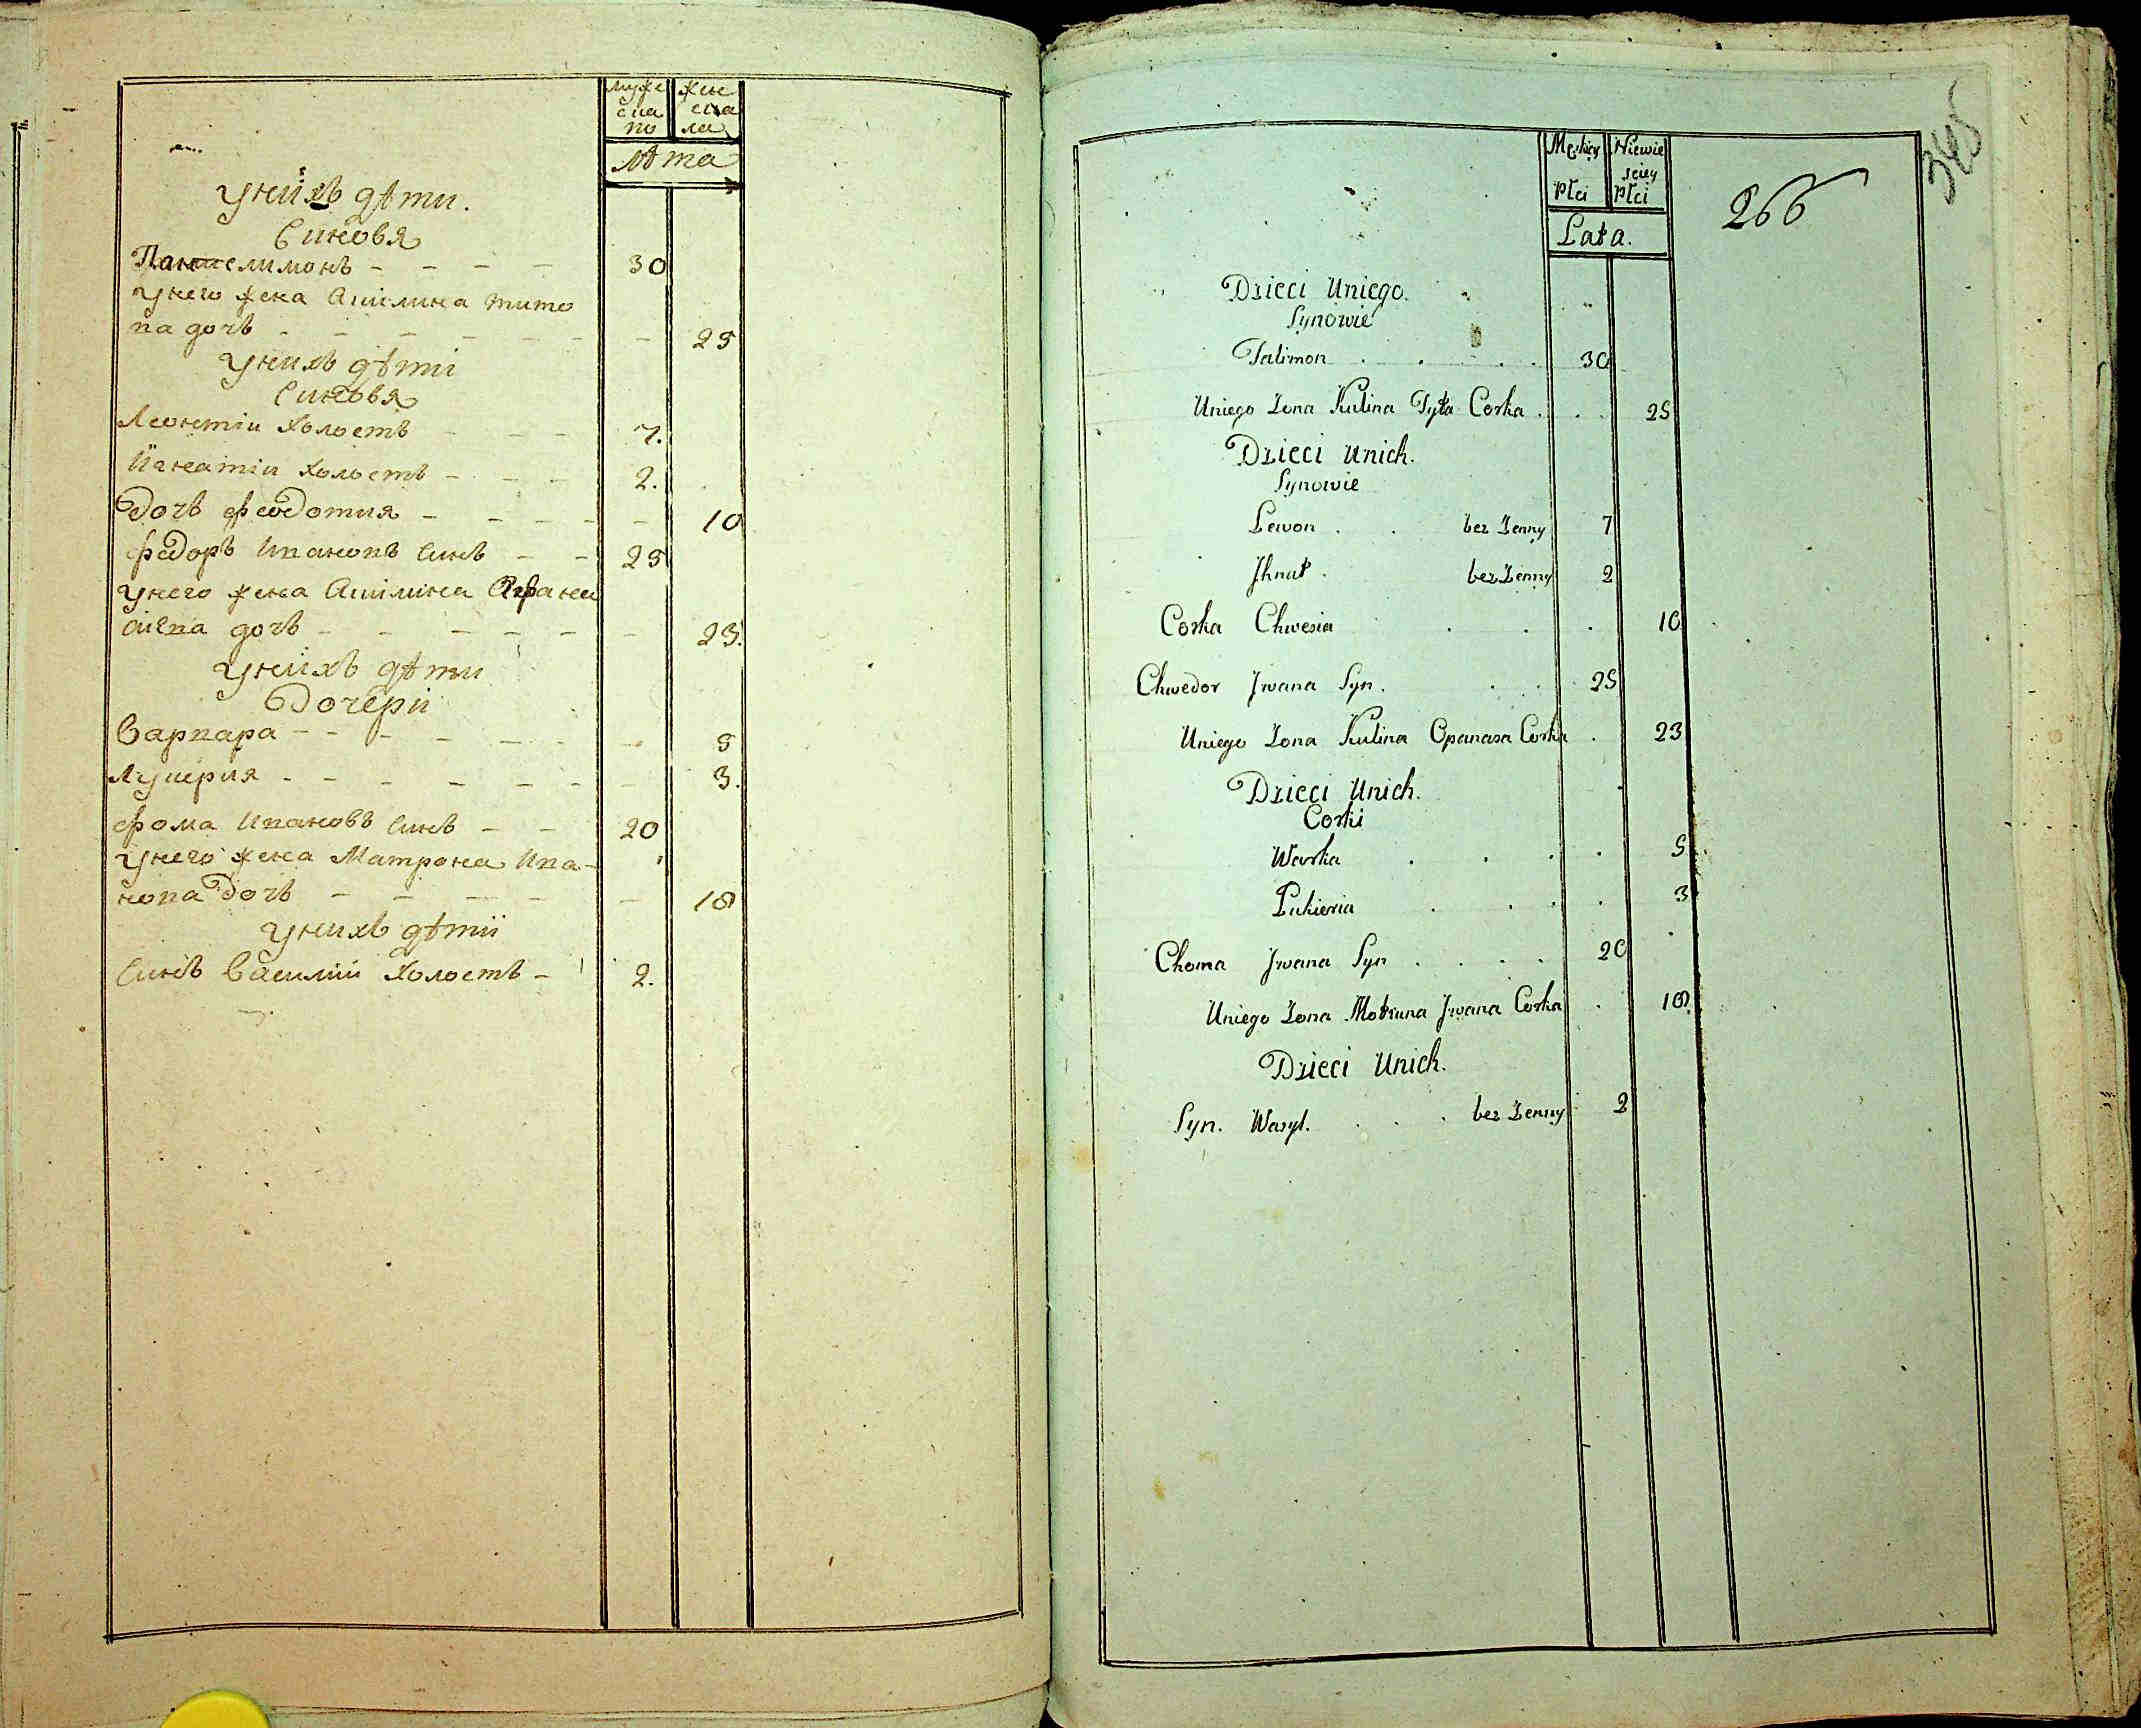 муже
ска
го
жен
ска
ла
лѣта
У них дѣти.
Синовя
Пантелимонъ - - - - 30
У него жена Акилина Тито
ва дочь - - - - - - 25
У нихъ дѣти
Синовя
Леонтіи холостъ - - - 7.
Игнатіи холостъ - - - 2.
Дочь Феодотия - - - - - 10
Федоръ Ивановъ синъ - - 25
У него жена Акилина Афана
сиева дочь - - - - - - 23.
У нихъ дѣти
Дочери
Варвара - - - - - - 5
Лукерия - - - - - - - 3.
Фома Ивановъ синъ - - 20
У него жена Матрона Ива-
нова дочь - - - - - 18
У нихъ дѣтіи
Синъ Василіи холостъ - 2.
345
Męskiey Płci
Niewie
sciey
Płci
266
Lata.
Dzieci Uniego.
Synowie
Talimon . . . . 30
Uniego Zona Kulina Tyta Corka . . . 25
Dzieci Unich.
Synowie
Lewon . . bez Zenny 7
Jhnat . bez Zenny 2
Corka Chwesia . . . 10
Chwedor Jwana Syn . . . 25
Uniego Zona Kulina Opanasa Corka . 23
Dzieci Unich.
Corki
Warka . . . . 5
Łukieria . . . . 3
Choma Jwana Syn . . . . 20
Uniego Zona Motruna Jwana Corka . 18.
Dzieci Unich.
Syn. Wasyl. . . . bez Zenny 2